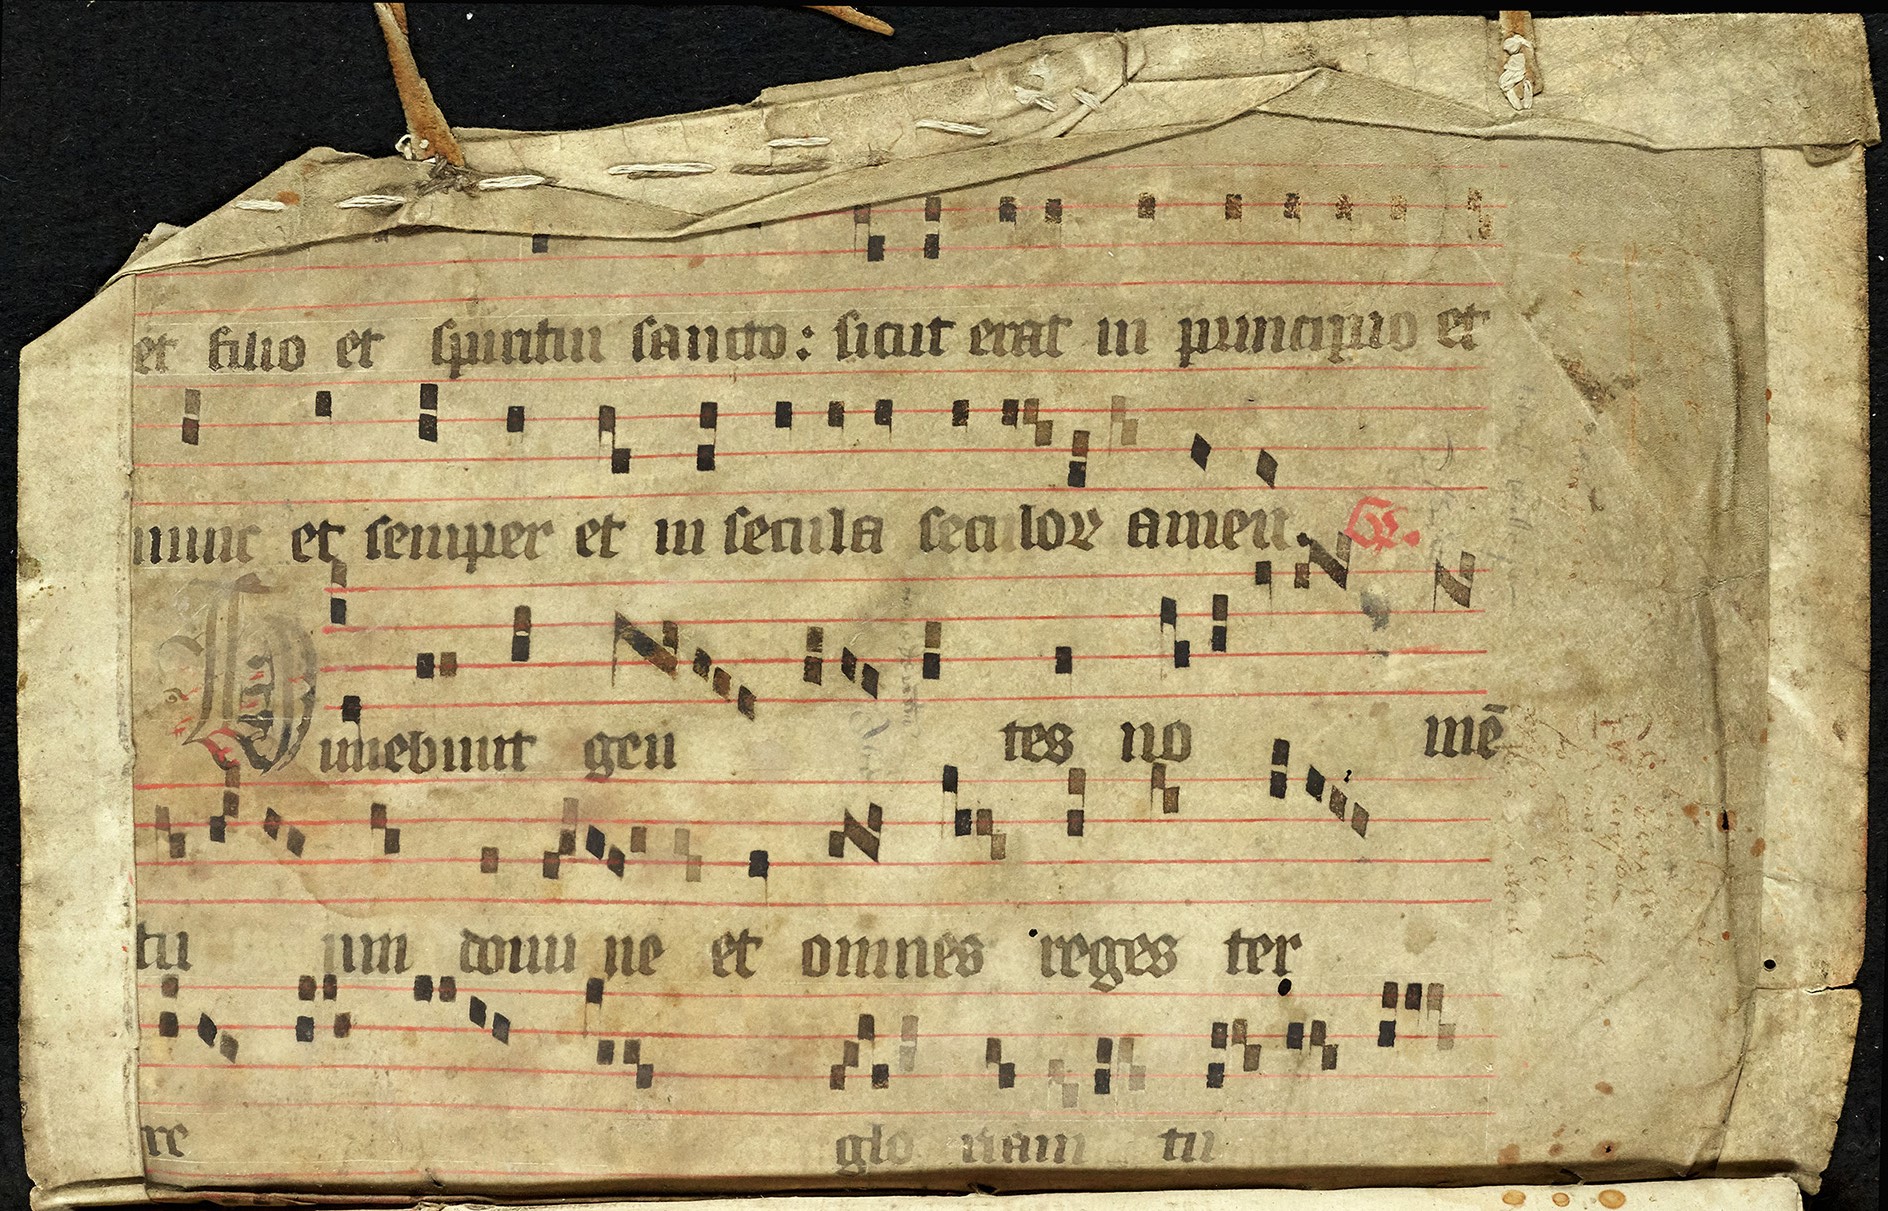 et filio et spiritui sancto: sicut erat in principio et
nunc et semper et in secula seculoꝝ amen. Gr.
Timebunt gen tes no mē
tu um domi ne et omnes reges ter
re glo riam tu